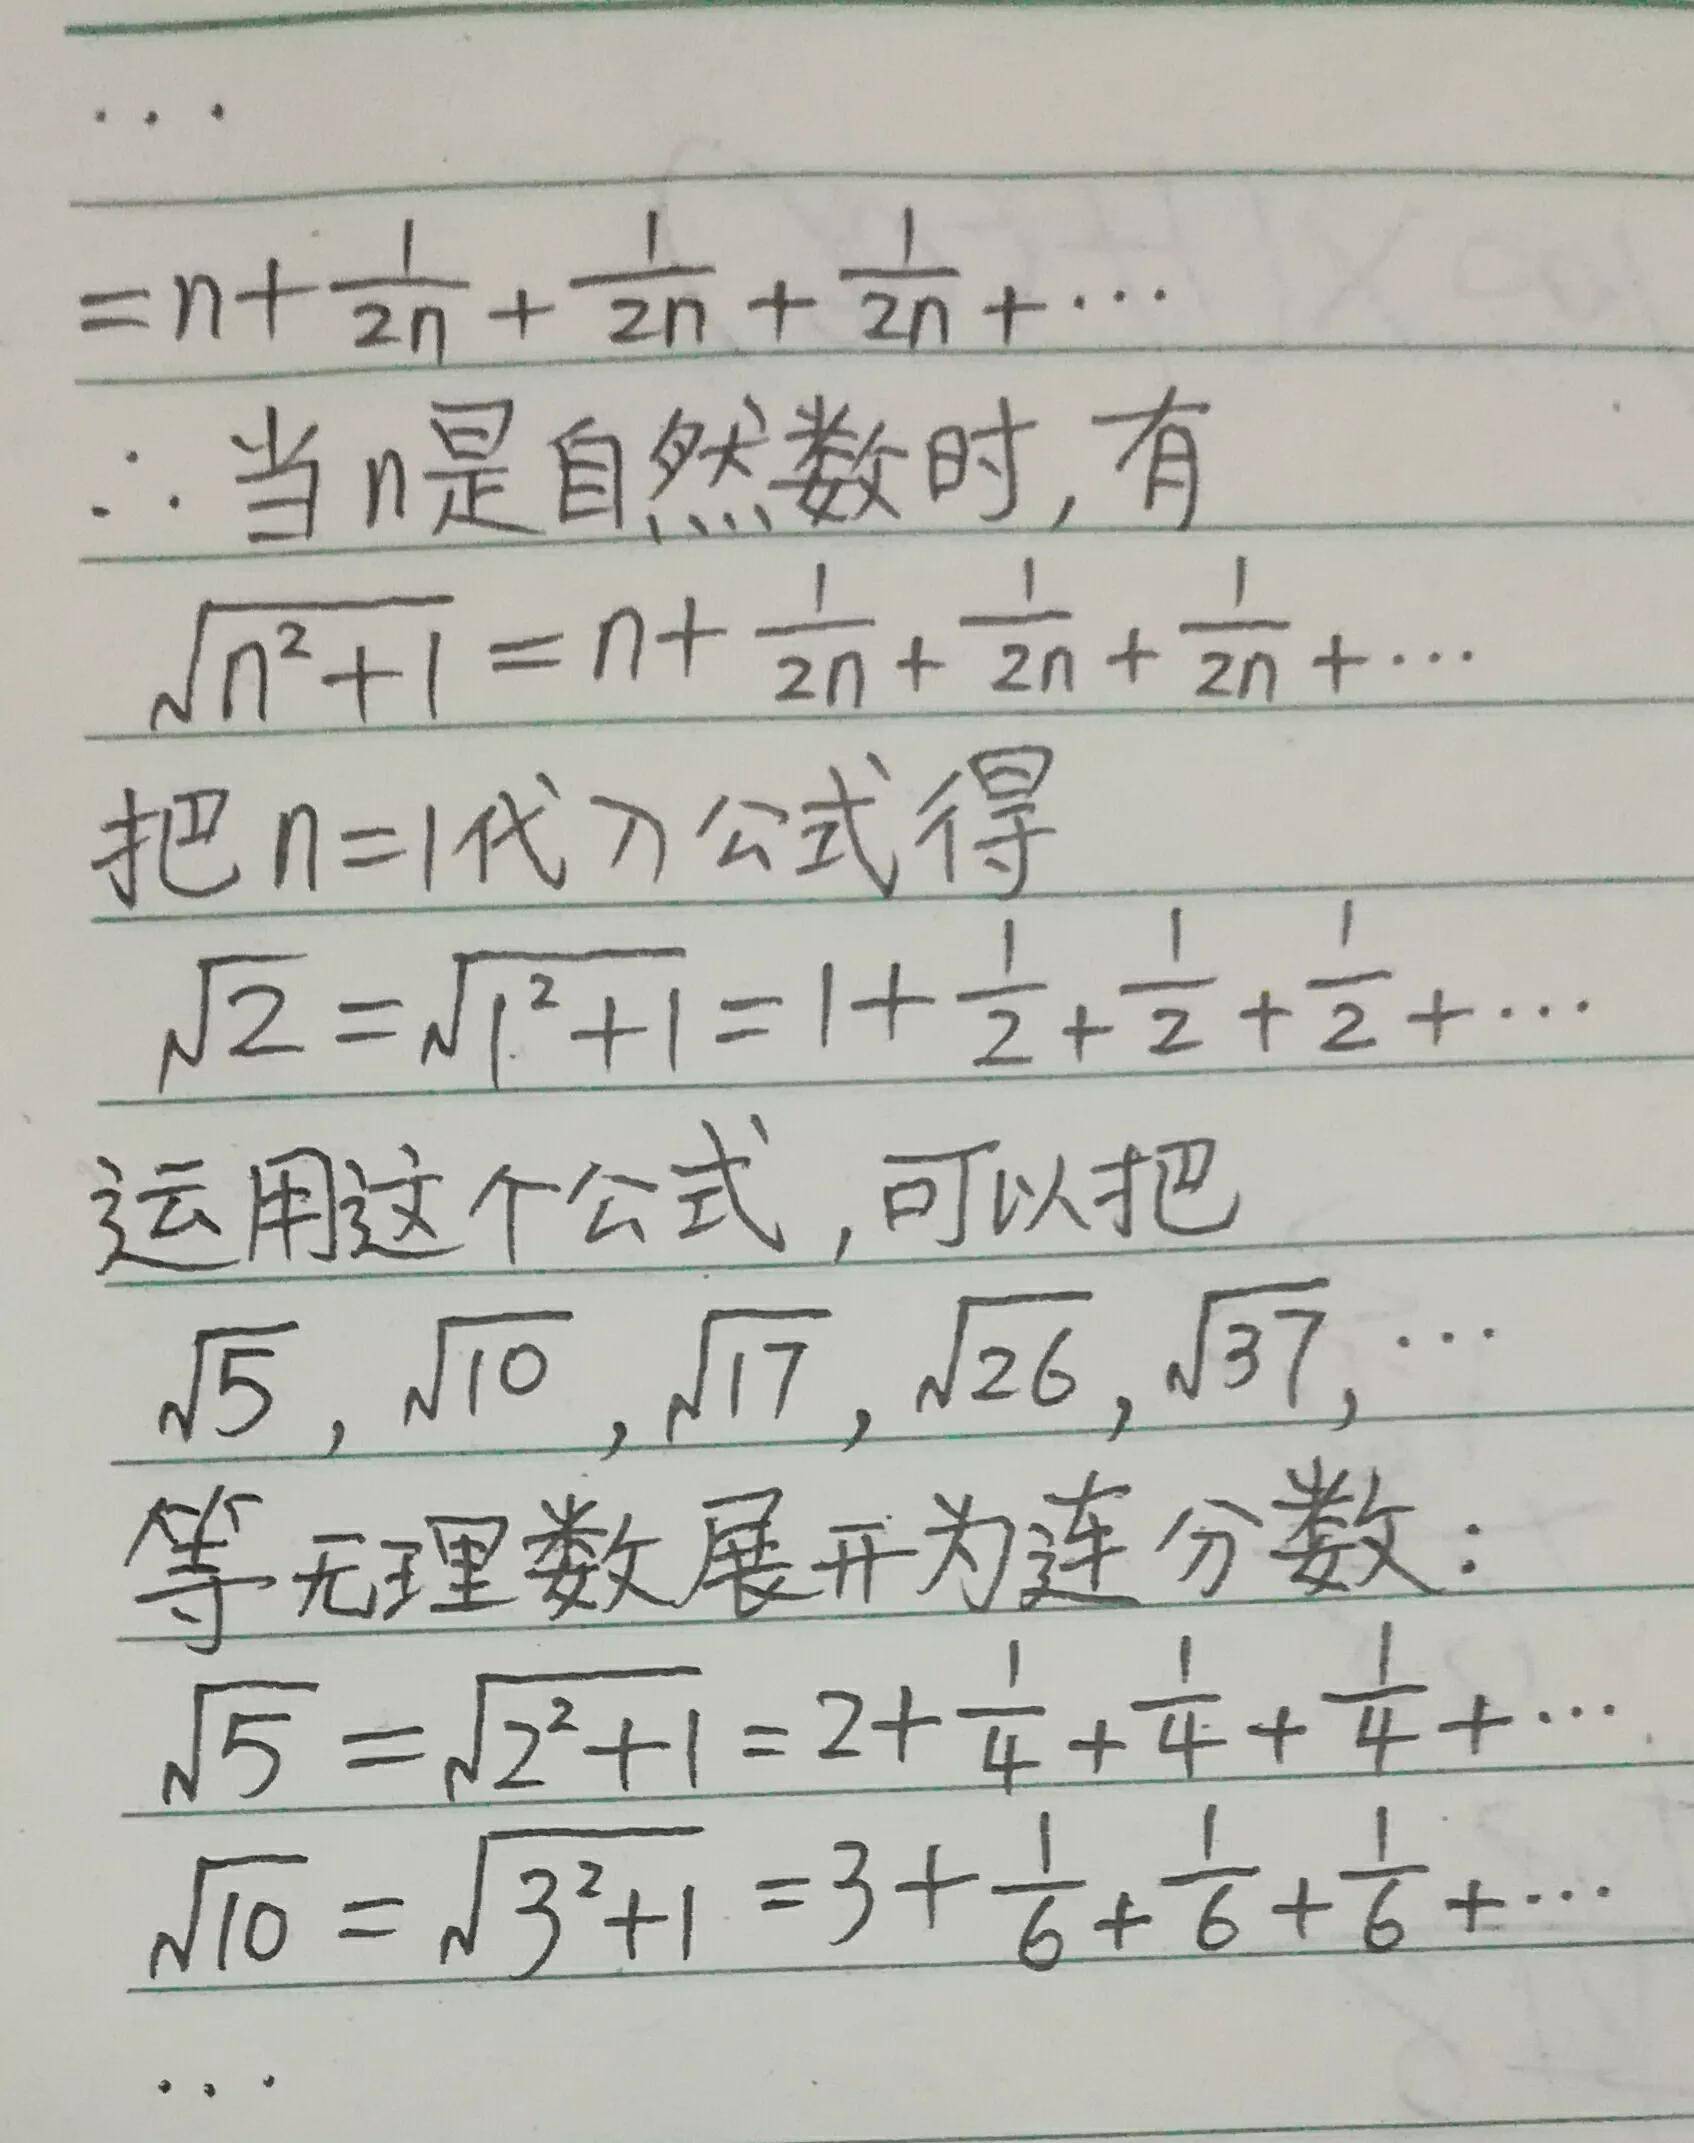 ...
=n+1/2n+1/2n+1/2n+...
∴当n是自然数时,有
√(n²+1)=n+1/2n+1/2n+1/2n+...
把n=1代入公式得
√2=√(1²+1)=1+1/2+1/2+1/2+...
运用这个公式,可以把
√5,√10,√17,√26,√37,...
等无理数展开为连分数:
√5=√(2²+1)=2+1/4+1/4+1/4+...
√10=√(3²+1)=3+1/6+1/6+1/6+...
...